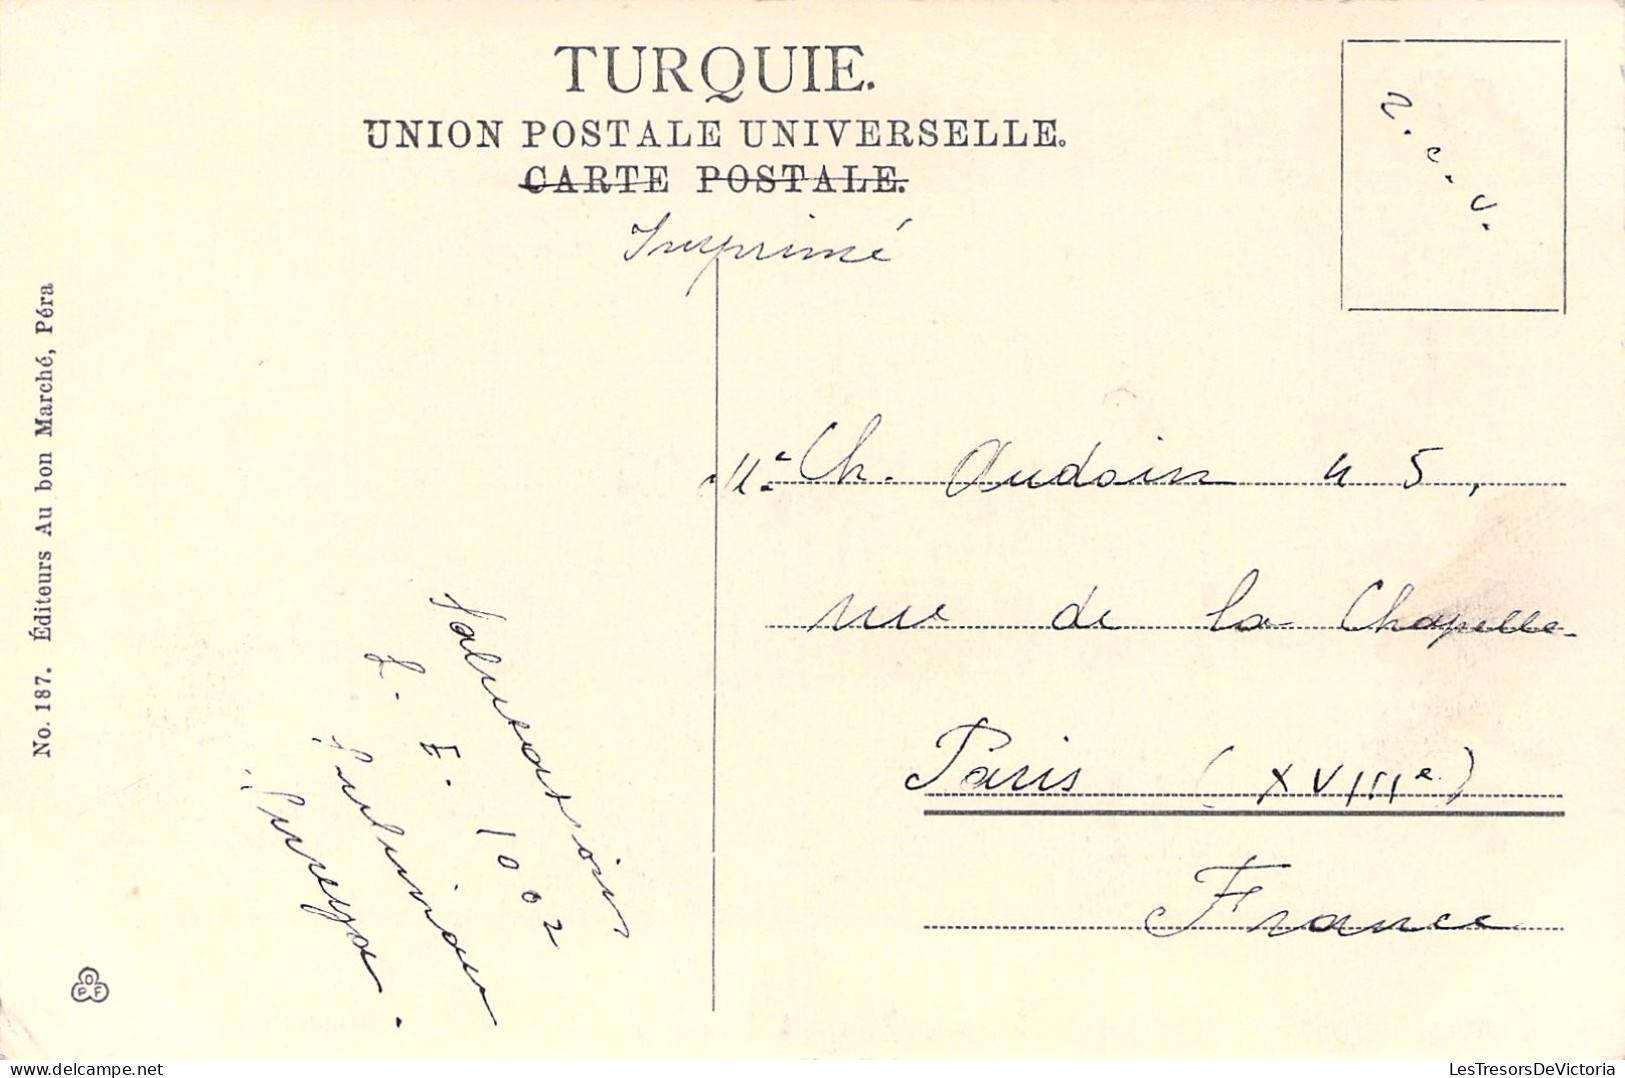 TURQUIE.
UNION POSTALE UNIVERSELLE.
CARTE POSTALE.
Imprimé
No. 187. Éditeurs Au bon Marché, Péra
Salutations
L. E. 1002
Suleiman
Sureya.
Ch. Audoin 45,
rue de la Chapelle
Paris (XVIIIe)
France
OPF
delcampe.net
LesTresorsDeVictoria